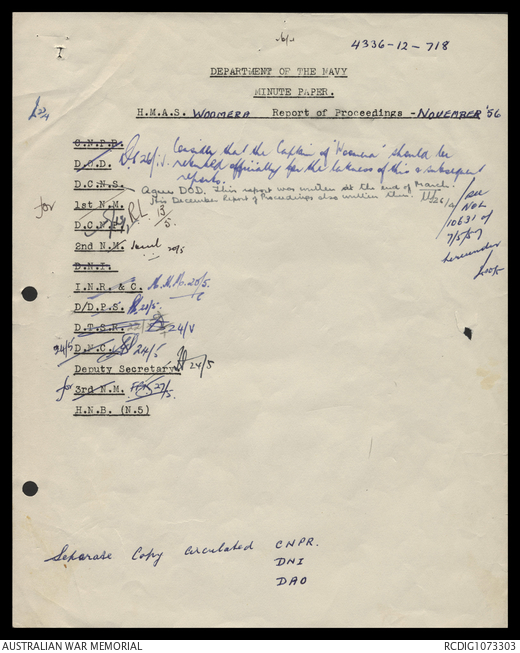 4336-12-718
DEPARTMENT OF THE NAVY
MINUTE PAPER.
H.M.A.S. WOOMERA Report of Proceedings - NOVEMBER '56
C.N.P.B.
D.O.D. 26/ Consider that the Captain of 'Woomera' should be
rebuked officially for the lateness of this & subsequent
reports.
D.C.N.S. Agree DOD. This report was written at the end of March.
This December Report of Proceedings also written then.
for 1st N.M. 13/5.
see
NOL
10631 of
7/5/57
hereunder
2nd N.M. 20/5
D.N.I.
I.N.R. & C. 20/5.
D/D.P.S. 20/5.
D.T.S.R. 24/V
24/5 D.N.C. 24/5
Deputy Secretary 24/5
for 3rd N.M. 27/5.
H.N.B. (N.5)
Separate Copy circulated CNPR.
DNI
DAO
AUSTRALIAN WAR MEMORIAL
RCDIG1073303